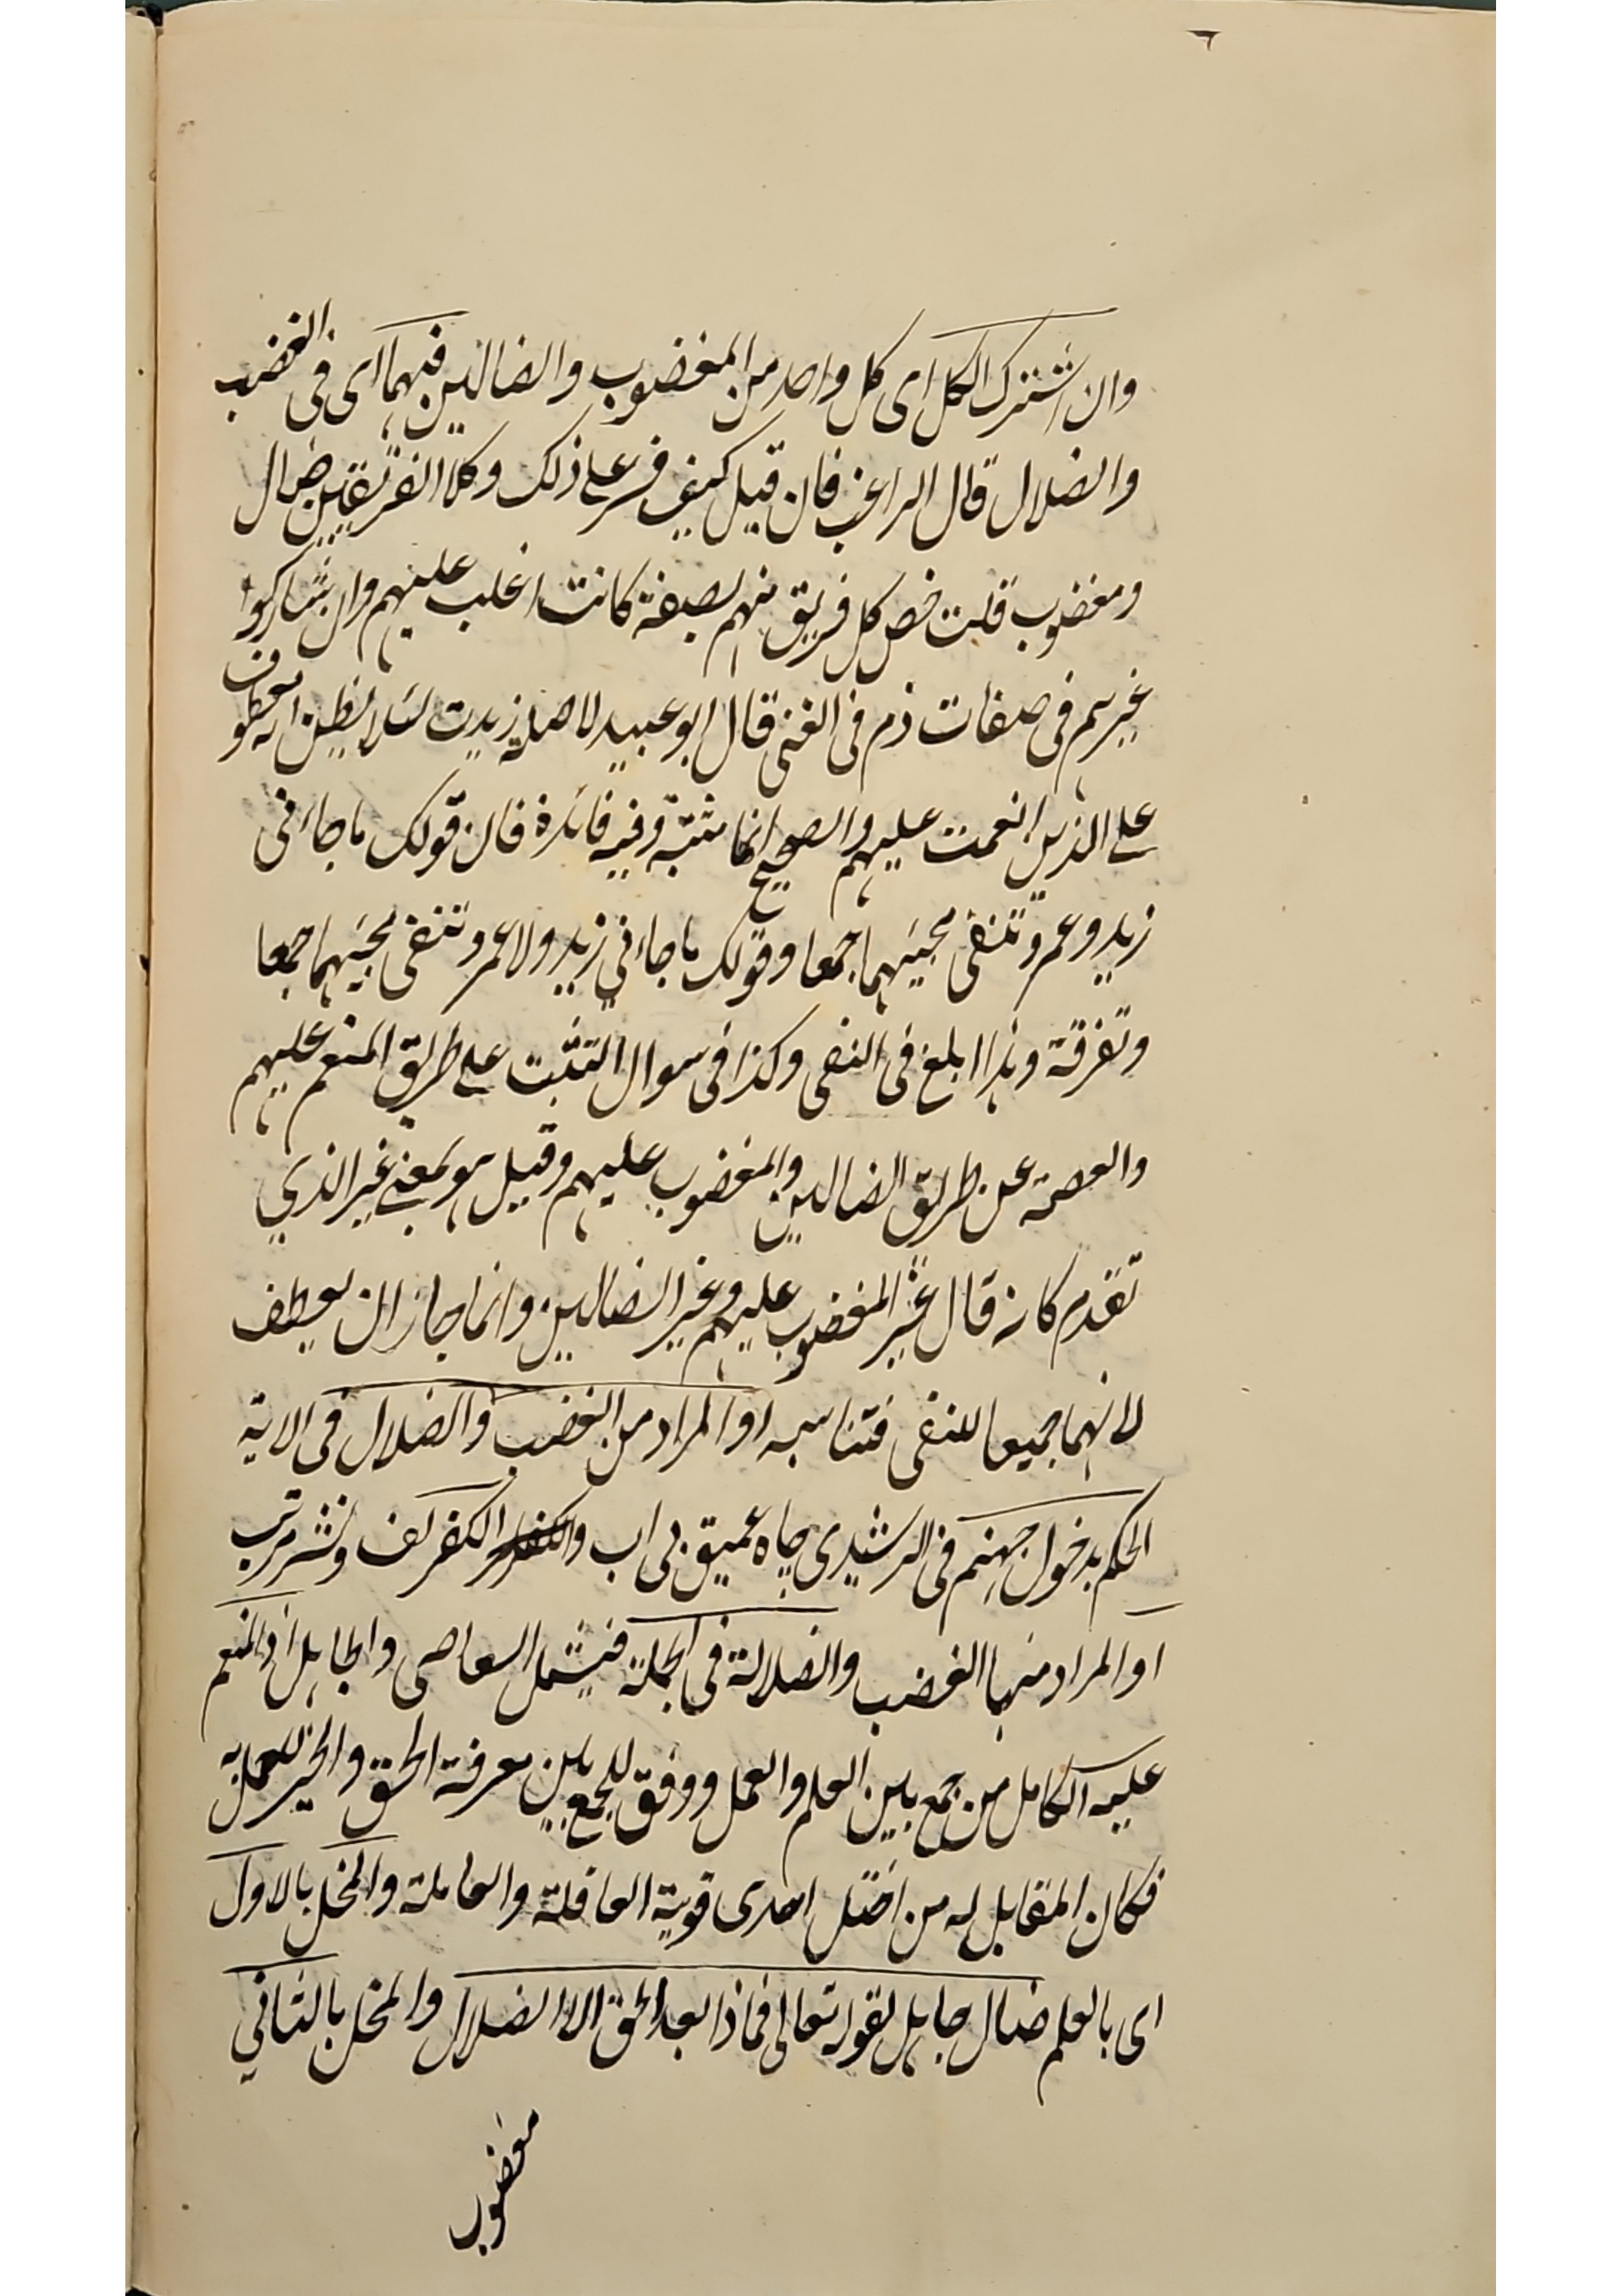 وان اشترك الكل اى كل واحد من المغضوب والضالين فيهما اى فى الغضب
والضلال قال الراغب فان قيل كيف فسر على ذلك وكلا الفريقين ضال
ومغضوب قلت خص كل فريق منهم بصفة كانت اغلب عليهم وان شاركوا
غيرهم فى صفات ذم فى الغنى قال ابو عبيد لا صلة زيدت لئلا يظن انه معطوف
على الذين انعمت عليهم والصحيح انها مثبتة وفيه فائدة فان قولك ما جاءنى
زيد وعمرو تنفى مجيئهما جمعا وقولك ما جاءني زيد ولا عمرو تنفى مجيئهما جمعا
وتفرقة وهذا ابلغ فى النفى وكذا فى سوال التثبت على طريق المنعم عليهم
والعصمة عن طريق الضالين والمغضوب عليهم وقيل هو بمعنى غير الذي
تقدم كانه قال غير المغضوب عليهم وغير الضالين وانما جاز ان يعطف
لانهما جميعا للنفى فتناسبه او المراد من الغضب والضلال فى الاية
الحكم بدخول جهنم فى الرشيدى چاه عميق بى اب والكفر لف ونشر مرتب
او المراد منهما الغضب والضلالة فى الجملة فيشمل العاصى والجاهل اذ المنعم
عليه الكامل من جمع بين العلم والعمل ووفق للجمع بين معرفة الحق والخير للعمل به
فكان المقابل له من اختل احدى قوتيه العاقلة والعاملة والمخل بالاول
اى بالعلم ضال جاهل لقوله تعالى فماذا بعد الحق الا الضلال والمخل بالثاني
مغضوب